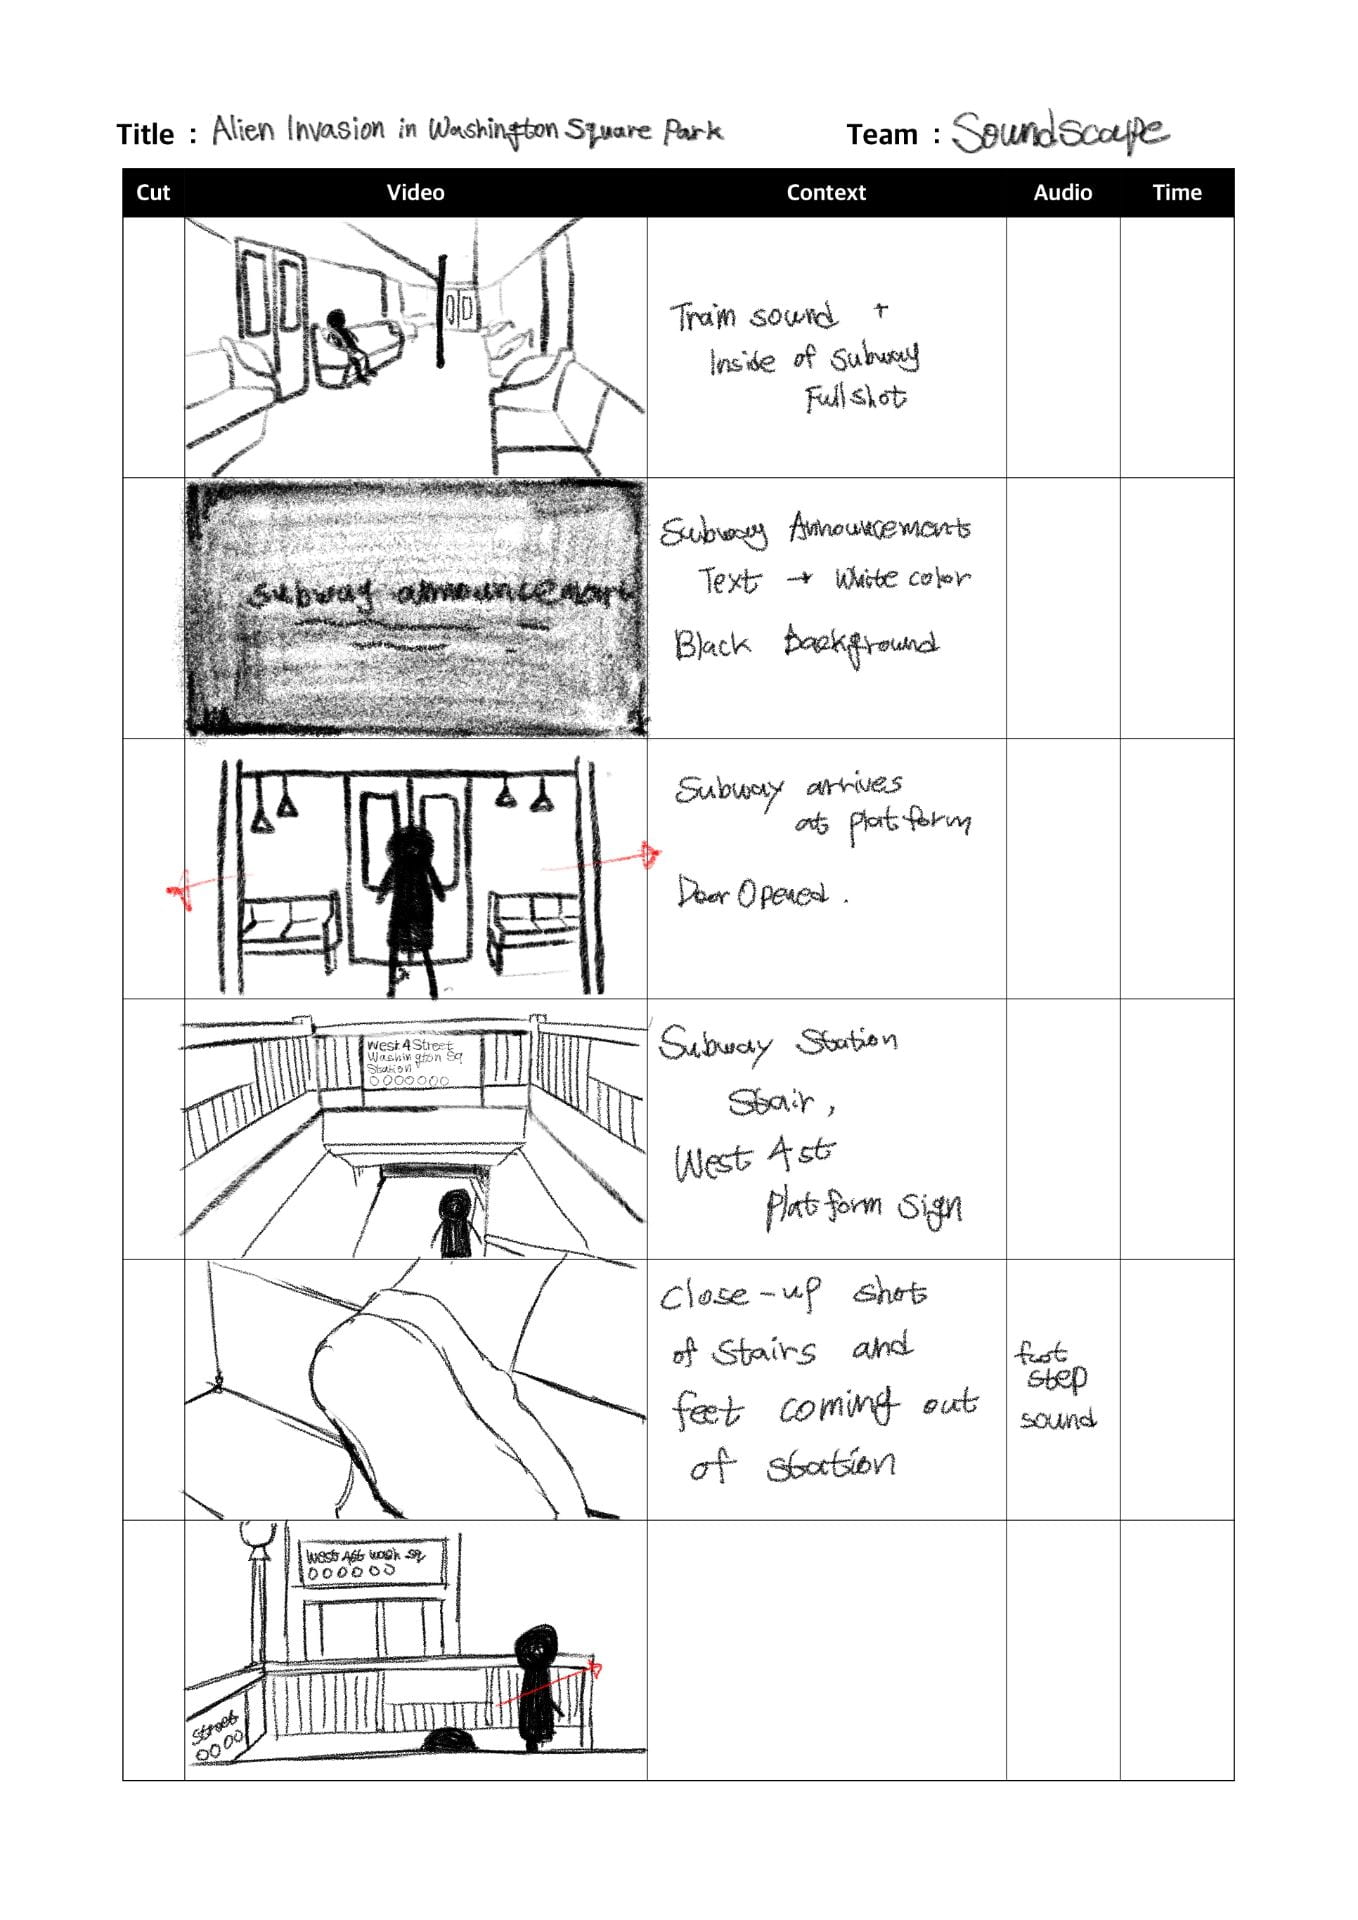 Title : Alien Invasion in Washington Square Park
Team : Soundscape
Cut Video Context Audio Time
Train sound +
Inside of subway
Full shot
subway announcement
Subway Announcements
Text → White color
Black Background
Subway arrives
at platform
Door Opened.
West 4 Street
Washington Sq
Station
OOOOOOO
Subway Station
Stair,
West 4st
Platform Sign
Close-up shot
of stairs and
feet coming out
of station
foot
step
sound
West 4st wash sq
OOOOOO
Street
OOOO